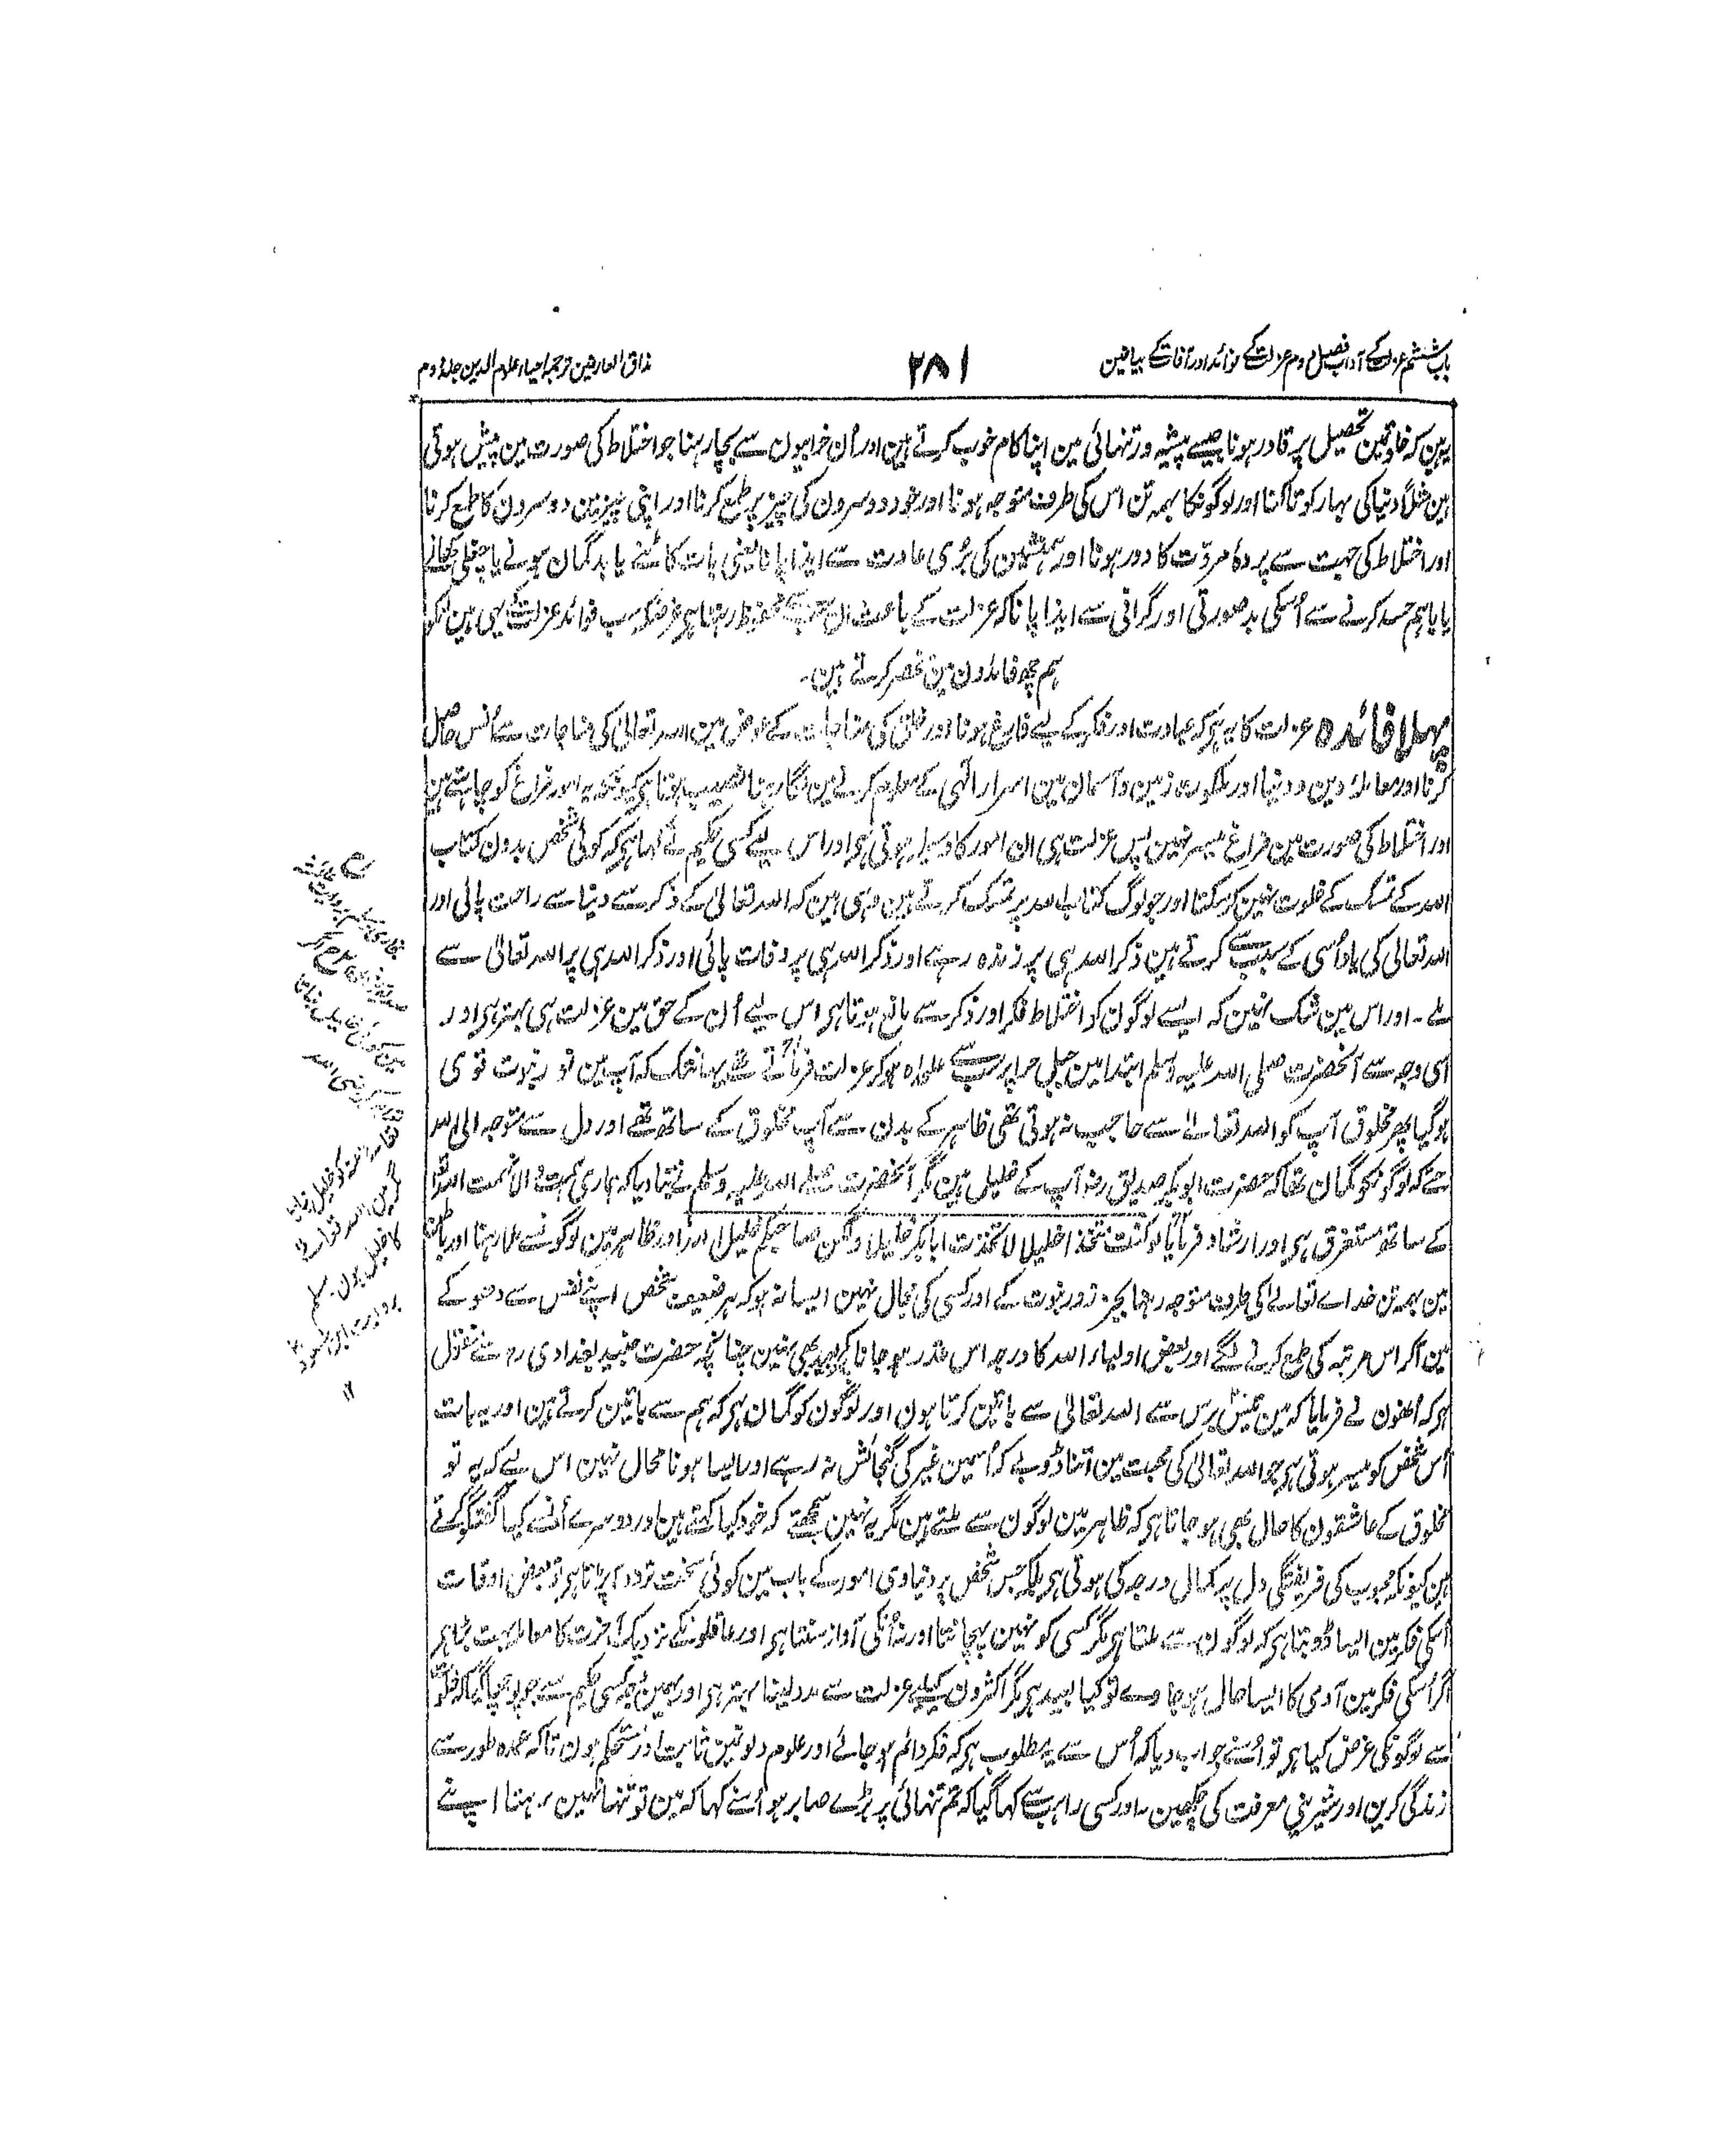 باب ششم عزلت کے آداب فصل دوم عزلت کے فوائد اور آفات کے بیان مین
۲۸۱
مذاق العارفین ترجمہ احیاء علوم الدین جلد دوم
یہین کہ خلوتمین تحصیل پر قادر ہونا جیسے پیشہ ور تنہائی مین اپنا کام خوب کرتے ہین اور اُن خرابیون سے بچا رہنا جو اختلاط کی صورت مین پیش ہوتی
ہین مثلاً دنیا کی بہار کو تاکنا اور لوگونکا ہمہ تن اس کی طرف متوجہ ہونا اور خود دوسرون کی چیز پر طمع کرنا اور اپنی چیز مین دوسرون کا طمع کرنا
اور اختلاط کی جہت سے پردہ مروّت کا دور ہونا اور ہمنشین کی بُری عادت سے ایذا پانا یعنی بات کاٹنے یا بدگمان ہونے یا چغلی کھانے
یا باہم حسد کرنے سے اُسکی بد صورتی اور گرانی سے ایذا پانا کہ عزلت کے باعث ان سب سے محفوظ رہتا ہی غرضکہ سب فوائد عزلت کے یہی ہین انکو
ہم چھ فائدون مین منحصر کرتے ہین۔
پہلا فائدہ عزلت کا یہ ہی کہ عبادت اور فکر کے لیے فارغ ہونا اور خلق کی مناجات کے عوض مین اللہ تعالیٰ کی مناجات سے اُنس حاصل
کرنا اور معاملہ دین و دنیا اور ملکوت زمین و آسمان مین اسرار الٰہی کے معلوم کرنے مین لگا رہنا نصیب ہوتا ہی کیونکہ یہ امور فراغ کو چاہتے ہین
اور اختلاط کی صورت مین فراغ میسر نہین پس عزلت ہی ان امور کا وسیلہ ہوتی ہی اور اس لیے کسی حکیم نے کہا ہی کہ کوئی شخص بدون کتاب
اللہ کے تمسک کے خلوت نہین کر سکتا اور جو لوگ کتاب اللہ پر تمسک کرتے ہین وہی ہین کہ اللہ تعالیٰ کے ذکر سے دنیا سے راحت پائی اور
اللہ تعالیٰ کی یاد اُسی کے سبب سے کرتے ہین ذکر اللہ ہی پر زندہ رہے اور ذکر اللہ ہی پر وفات پائی اور ذکر اللہ ہی پر اللہ تعالیٰ سے
ملے۔ اور اس مین شک نہین کہ ایسے لوگون کو اختلاط فکر اور ذکر سے مانع ہوتا ہی اس لیے اُن کے حق مین عزلت ہی بہتر ہی اور
اسی وجہ سے آنحضرت صلی اللہ علیہ وسلم ابتدا مین جبل حرا پر سب سے علٰحدہ ہو کر عزلت فرماتے تھے یہانتک کہ آپ مین نور نبوت قوی
ہو گیا پھر مخلوق آپ کو اللہ تعالیٰ سے حاجب نہ ہوتی تھی ظاہر کے بدن سے آپ مخلوق کے ساتھ تھے اور دل سے متوجہ الی اللہ
حتے کہ لوگونکو گمان تھا کہ حضرت ابوبکر صدیق رضہ آپ کے خلیل ہین مگر آنحضرت صلے اللہ علیہ وسلم نے بتا دیا کہ ہماری ہمت والا نہمت اللہ تعالیٰ
کے ساتھ مستغرق ہی اور ارشاد فرمایا لو کنت متخذا خلیلا لاتخذت ابابکر خلیلا ولکن صاحبکم خلیل اللہ اور ظاہر مین لوگونسے ملا رہنا اور باطن
مین ہمہ تن خداے تعالےٰ کی طرف متوجہ رہنا بجز زور نبوت کے اور کسی کی مجال نہین ایسا نہ ہو کہ ہر ضعیف شخص اپنے نفس سے دھوکے
مین آکر اس مرتبہ کی طمع کرنے لگے اور بعض اولیاء اللہ کا درجہ اس قدر ہو جانا کچھ بعید بھی نہین چنانچہ حضرت جنید بغدادی رہ سے منقول
ہی کہ اُنھون نے فرمایا کہ مین تیس برس سے اللہ تعالیٰ سے باتین کرتا ہون اور لوگون کو گمان ہی کہ ہم سے باتین کرتے ہین اور یہ بات
اُس شخص کو میسر ہوتی ہی جو اللہ تعالیٰ کی محبت مین اتنا ڈوبے کہ اُسمین غیر کی گنجائش نہ رہے اور ایسا ہونا محال نہین اس لیے کہ یہ تو
مخلوق کے عاشقون کا حال بھی ہو جاتا ہی کہ ظاہر مین لوگون سے ملتے ہین مگر یہ نہین سمجھتے کہ خود کیا کہتے ہین اور دوسرے اُنسے کیا گفتگو کرتے
ہین کیونکہ محبوب کی فریفتگی دل پر کمال درجہ کی ہوتی ہی بلکہ جس شخص پر دنیاوی امور کے باب مین کوئی سخت تردد آ پڑتا ہی تو بعض اوقات
اُسکی فکر مین ایسا ڈوبتا ہی کہ لوگون سے ملتا ہی مگر کسی کو نہین پہچانتا اور نہ اُنکی آواز سنتا ہی اور عاقلونکے نزدیک آخرت کا معاملہ بہت بڑا ہی
اگر اُسکی فکر مین آدمی کا ایسا حال ہو جاوے تو کیا بعید ہی مگر اکثرون کیلیے عزلت سے مدد لینا بہتر ہی اور یہین وجہ کسی حکیم سے جو پوچھا گیا کہ خلوت
سے لوگونکی غرض کیا ہی تو اُسنے جواب دیا کہ اُس سے یہ مطلوب ہی کہ فکر دائم ہو جائے اور علوم دلونمین ثابت اور مستحکم ہون تاکہ عمدہ طور سے
زندگی کرین اور شیرینی معرفت کی چکھین۔ اور کسی راہب سے کہا گیا کہ تم تنہائی پر بڑے صابر ہو اُسنے کہا کہ مین تو تنہا نہین رہتا اپنے
بخاری و مسلم بروایت عائشہ
گر مین اللہ تعالیٰ
کا خلیل ہون۔ مسلم
بروایت ابن مسعود
۱۲